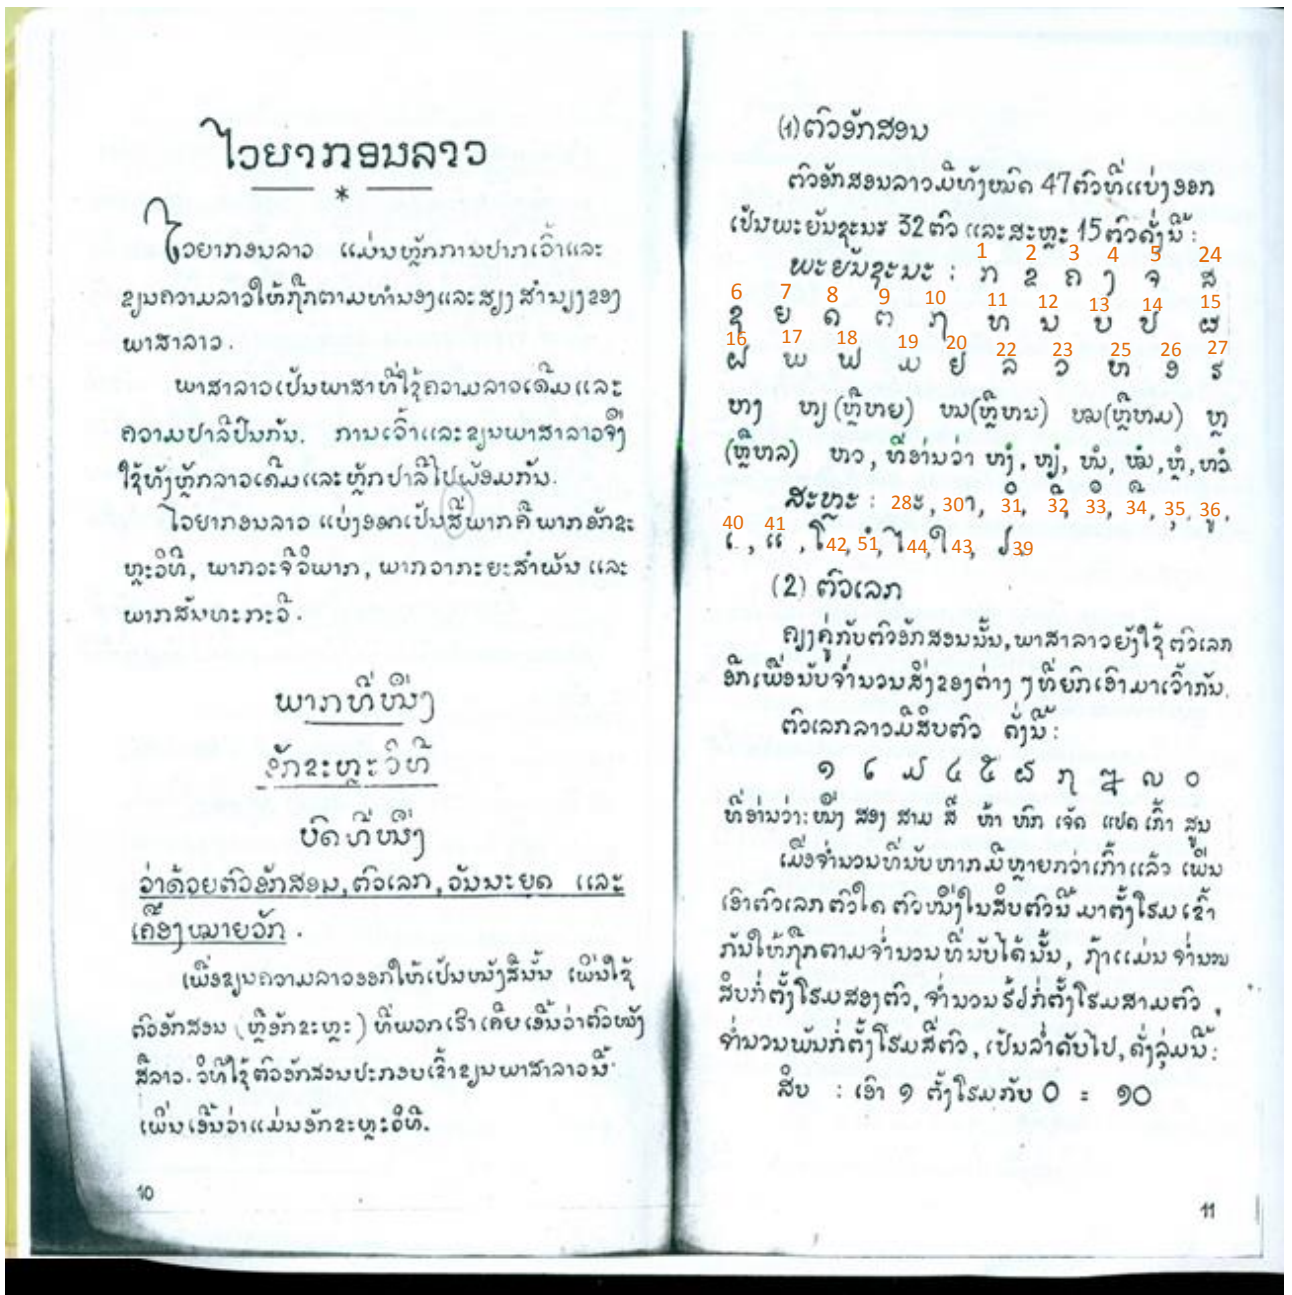 ໄວຍາກອນລາວ
*
ໄວຍາກອນລາວ ແມ່ນຫຼັກການປາກເວົ້າແລະ
ຂຽນຄວາມລາວໃຫ້ຖືກຕາມທຳນອງແລະສຽງ ສຳນຽງຂອງ
ພາສາລາວ.
ພາສາລາວເປັນພາສາທີ່ໃຊ້ຄວາມລາວເດີມແລະ
ຄວາມປາລີປົນກັນ. ການເວົ້າແລະຂຽນພາສາລາວຈຶ່ງ
ໃຊ້ທັງຫຼັກລາວເດີມແລະຫຼັກປາລີໄປພ້ອມກັນ.
ໄວຍາກອນລາວ ແບ່ງອອກເປັນສີ່ພາກຄື ພາກອັກຂະ
ຫຼະວິທີ, ພາກວະຈີວິພາກ, ພາກວາກະຍະສຳພັນ ແລະ
ພາກສັນທະກະວີ.
ພາກທີ່ໜຶ່ງ
ອັກຂະຫຼະວິທີ
ບົດທີ່ໜຶ່ງ
ວ່າດ້ວຍຕົວອັກສອນ, ຕົວເລກ, ວັນນະຍຸດ ແລະ
ເຄື່ອງໝາຍວັກ.
ເພື່ອຂຽນຄວາມລາວອອກໃຫ້ເປັນໜັງສືນັ້ນ ເພິ່ນໃຊ້
ຕົວອັກສອນ (ຫຼືອັກຂະຫຼະ) ທີ່ພວກເຮົາເຄີຍເອີ້ນວ່າຕົວໜັງ
ສືລາວ. ວິທີໃຊ້ຕົວອັກສອນປະກອບເຂົ້າຂຽນພາສາລາວນີ້
ເພິ່ນເອີ້ນວ່າແມ່ນອັກຂະຫຼະວິທີ.
10
(1) ຕົວອັກສອນ
ຕົວອັກສອນລາວມີທັງໝົດ 47ຕົວທີ່ແບ່ງອອກ
ເປັນພະຍັນຊະນະ 32 ຕົວ ແລະສະຫຼະ 15 ຕົວດັ່ງນີ້:
1 2 3 4 5 24
ພະຍັນຊະນະ : ກ ຂ ຄ ງ ຈ ສ
6 7 8 9 10 11 12 13 14 15
ຊ ຍ ດ ຕ ຖ ທ ນ ບ ປ ຜ
16 17 18 19 20 22 23 25 26 27
ຝ ພ ຟ ມ ຢ ລ ວ ຫ ອ ຮ
ຫງ ຫຽ (ຫຼືຫຍ) ໜ(ຫຼືຫນ) ໝ(ຫຼືຫມ) ຫຼ
(ຫຼືຫລ) ຫວ, ທີ່ອ່ານວ່າ ຫງໍ, ຫຽໍ, ໜໍ, ໝໍ, ຫຼໍ, ຫວໍ
ສະຫຼະ : 28ະ, 30າ, 31 ິ, 32 ີ, 33 ຶ, 34 ື, 35 ຸ, 36 ູ,
40 ເ, 41 ແ, ໂ42, 51 ໍ, ໄ44, ໃ43, ຽ39
(2) ຕົວເລກ
ຄຽງຄູ່ກັບຕົວອັກສອນນັ້ນ, ພາສາລາວຍັງໃຊ້ຕົວເລກ
ອີກເພື່ອນັບຈຳນວນສິ່ງຂອງຕ່າງ ໆ ທີ່ຍົກເອົາມາເວົ້າກັນ.
ຕົວເລກລາວມີສິບຕົວ ດັ່ງນີ້:
໑ ໒ ໓ ໔ ໕ ໖ ໗ ໘ ໙ ໐
ທີ່ອ່ານວ່າ: ໜຶ່ງ ສອງ ສາມ ສີ່ ຫ້າ ຫົກ ເຈັດ ແປດ ເກົ້າ ສູນ
ເມື່ອຈຳນວນທີ່ນັບຫາກມີຫຼາຍກວ່າເກົ້າແລ້ວ ເພິ່ນ
ເອົາຕົວເລກຕົວໃດ ຕົວໜຶ່ງໃນສິບຕົວນີ້ ມາຕັ້ງໂຮມເຂົ້າ
ກັນໃຫ້ຖືກຕາມຈຳນວນທີ່ນັບໄດ້ນັ້ນ, ຖ້າແມ່ນຈຳນວນ
ສິບກໍ່ຕັ້ງໂຮມສອງຕົວ, ຈຳນວນຮ້ຽກໍ່ຕັ້ງໂຮມສາມຕົວ,
ຈຳນວນພັນກໍ່ຕັ້ງໂຮມສີ່ຕົວ, ເປັນລຳດັບໄປ, ດັ່ງລຸ່ມນີ້:
ສິບ : ເອົາ ໑ ຕັ້ງໂຮມກັບ 0 = ໑0
11